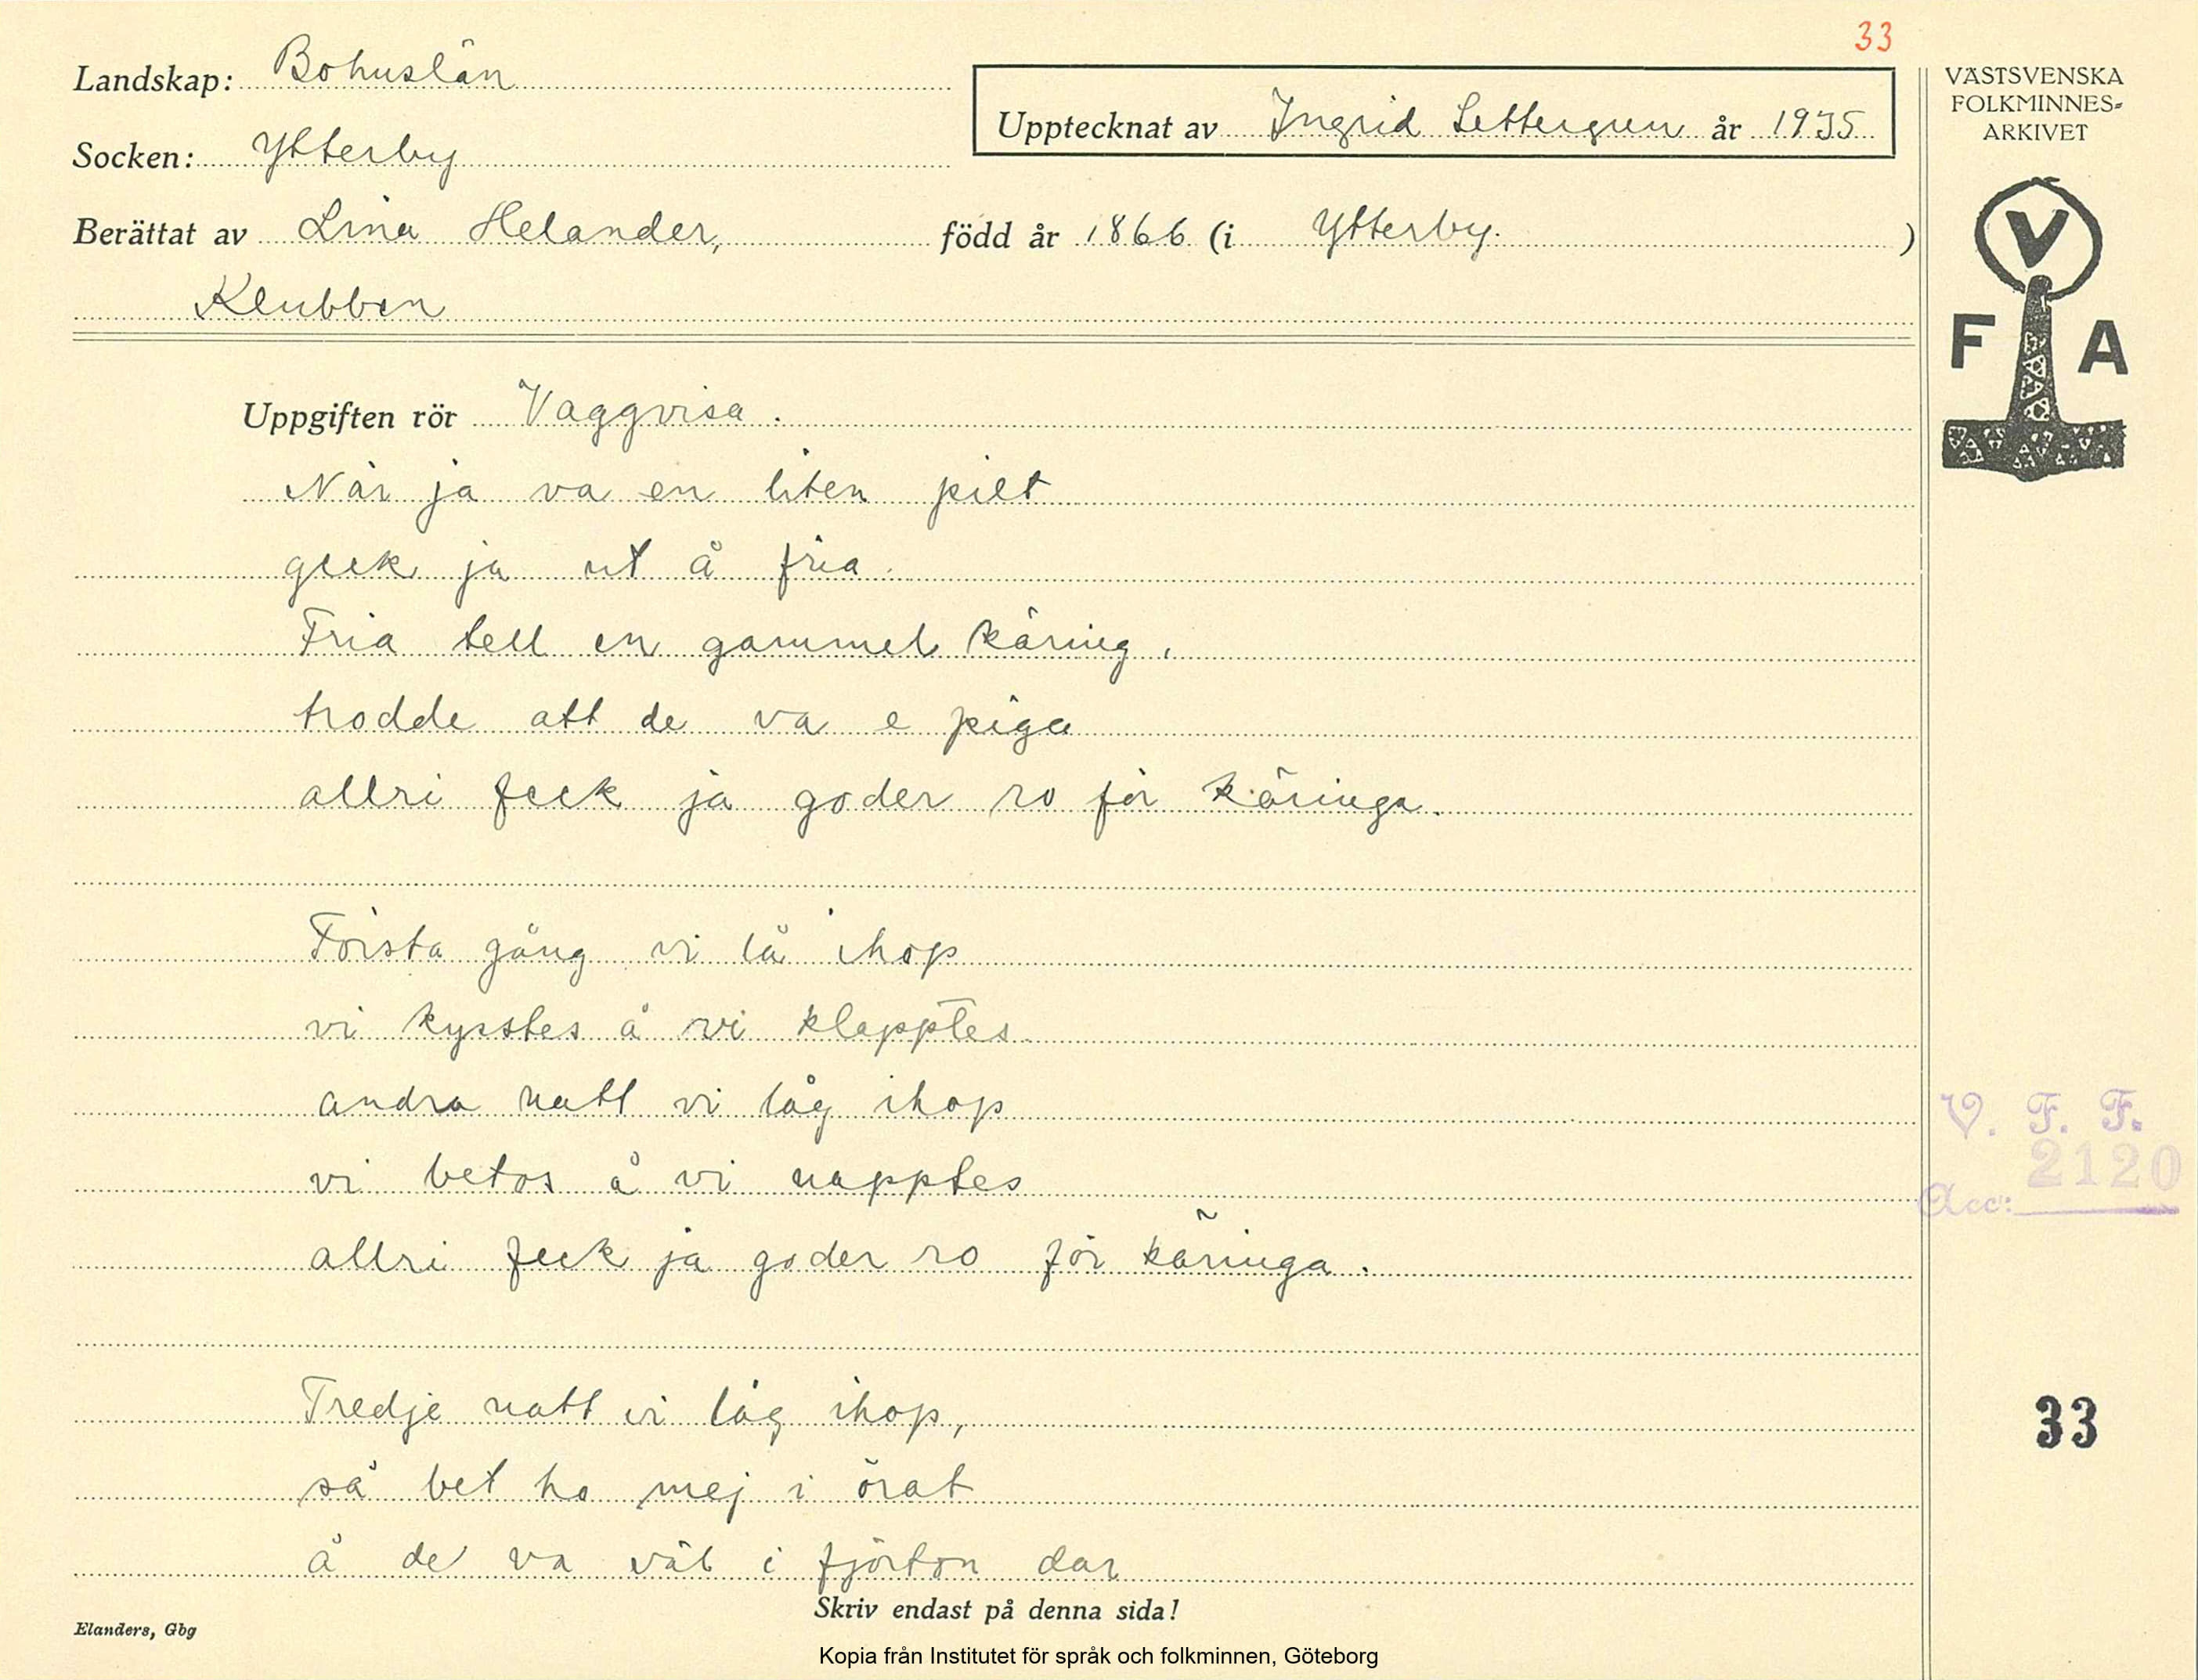 33
Landskap: Bohuslän
Socken: Ytterby
Upptecknat av Ingrid Settergren år 1935
Berättat av Lina Helander, född år 1866 (i Ytterby.)
Klubben
VÄSTSVENSKA
FOLKMINNES-
ARKIVET
V
F A
Uppgiften rör Vaggvisa.
När ja va en liten pilt
geck ja ut å fria.
Fria tell en gammel käring,
trodde att de va e piga
allri feck ja goder ro för käringa.
Första gång vi lå ihop
vi kysstes å vi klapptes.
andra natt vi låg ihop
vi betos å vi napptes
allri feck ja goder ro för käringa.
Tredje natt vi låg ihop,
så bet ho mej i örat
å de va väl i fjörton dar
V. F. F.
Acc: 2120
33
Skriv endast på denna sida!
Elanders, Gbg
Kopia från Institutet för språk och folkminnen, Göteborg